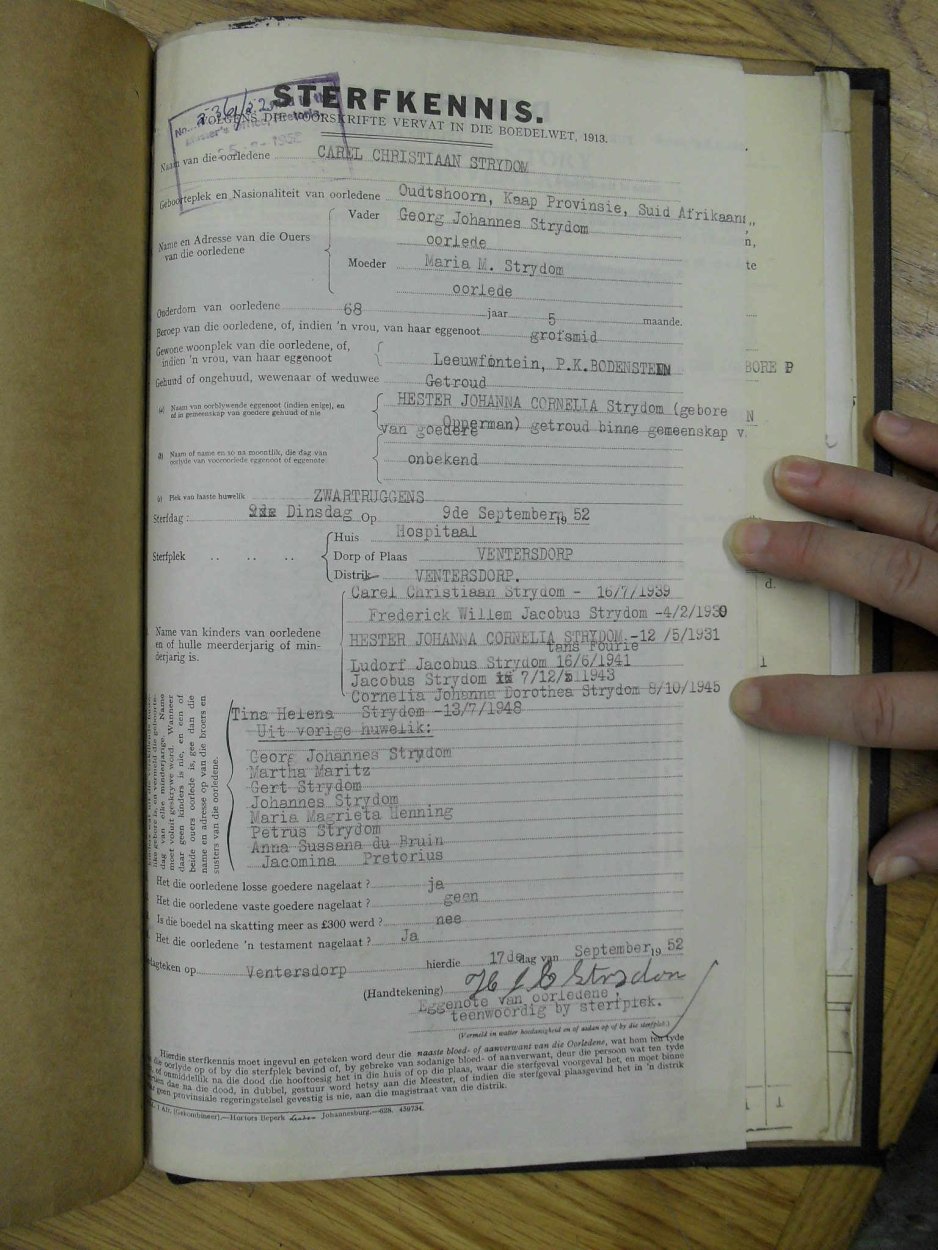 STERFKENNIS.
VOLGENS DIE VOORSKRIFTE VERVAT IN DIE BOEDELWET, 1913.
No.
Master's Office, Pretoria
Naam van die oorledene CAREL CHRISTIAAN STRYDOM
Geboorteplek en Nasionaliteit van oorledene Oudtshoorn, Kaap Provinsie, Suid Afrikaans
Vader Georg Johannes Strydom
Name en Adresse van die Ouers van die oorledene
oorlede
Moeder Maria M. Strydom
oorlede
Onderdom van oorledene 68 jaar 5 maande.
Beroep van die oorledene, of, indien 'n vrou, van haar eggenoot grofsmid
Gewone woonplek van die oorledene, of,
indien 'n vrou, van haar eggenoot Leeuwfontein, P.K.BODENSTEIN
Gehuud of ongehuud, wewenaar of weduwee Getroud
(a) Naam van oorblywende eggenoot (indien enige), en HESTER JOHANNA CORNELIA Strydom (gebore
of in gemeenskap van goedere gehuud of nie
Opperman) getroud binne gemeenskap v.
van goedere
(b) Naam of name en so na moontlik, die dag van
oorlyde van vooroorlede eggenoot of eggenote onbekend
(c) Plek van laaste huwelik ZWARTRUGGENS
Sterfdag: Dinsdag Op 9de September 19 52
Huis Hospitaal
Sterfplek .. .. .. Dorp of Plaas VENTERSDORP
Distrik VENTERSDORP.
Carel Christiaan Strydom - 16/7/1939
Frederick Willem Jacobus Strydom -4/2/1930
Name van kinders van oorledene HESTER JOHANNA CORNELIA STRYDOM.-12 /5/1931
en of hulle meerderjarig of min- tans Fourie
derjarig is. Ludorf Jacobus Strydom 16/6/1941
Jacobus Strydom 7/12/ 1943
Cornelia Johanna Dorothea Strydom 8/10/1945
Tina Helena Strydom -13/7/1948
Uit vorige huwelik:
Georg Johannes Strydom
Martha Maritz
Gert Strydom
Johannes Strydom
Maria Magrieta Henning
Petrus Strydom
Anna Sussana du Bruin
Jacomina Pretorius
like gebore is, en vermeld die geboorte-
dag van elke minderjarige. Name
moet voluit geskrywe word. Wanneer
daar geen kinders is nie, en een of
beide ouers oorlede is, gee dan die
name en adresse op van die broers en
susters van die oorledene.
Het die oorledene losse goedere nagelaat? ja
Het die oorledene vaste goedere nagelaat? geen
Is die boedel na skatting meer as £300 werd? nee
Het die oorledene 'n testament nagelaat? Ja
Ventersdorp hierdie 17de dag van September 19 52
(Handtekening) H J C Strydom
Eggenote van oorledene,
teenwoordig by sterfplek.
(Vermeld in watter hoedanigheid en of aldan op of by die sterfplek.)
Hierdie sterfkennis moet ingevul en geteken word deur die naaste bloed- of aanverwant van die Oorledene, wat hom ten tyde
die oorlyde op of by die sterfplek bevind of, by gebreke van sodanige bloed- of aanverwant, deur die persoon wat ten tyde
of onmiddellik na die dood die hooftoesig het in die huis of op die plaas, waar die sterfgeval voorgeval het, en moet binne
tien dae na die dood, in dubbel, gestuur word hetsy aan die Meester, of indien die sterfgeval plaasgevind het in 'n distrik
geen provinsiale regeringstelsel gevestig is nie, aan die magistraat van die distrik.
(Gekombineer).—Hortors Beperk Johannesburg.—628. 459734.